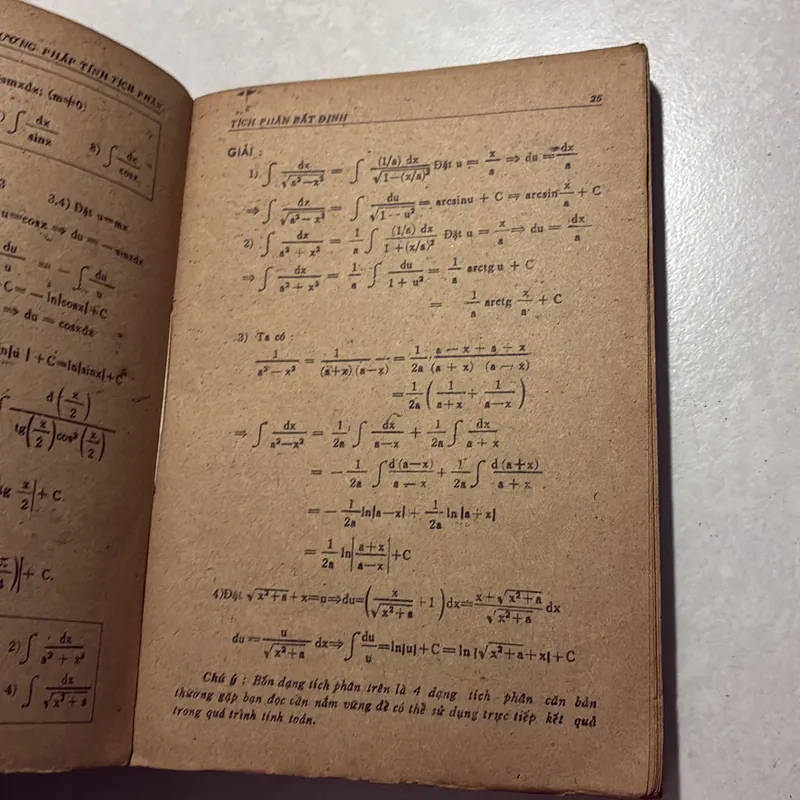 ƯƠNG PHÁP TÍNH TÍCH PHÂN
smxdx; (m≠0)
∫ dx/sinx
8) ∫ dx/cosx
3 3,4) Đặt u=mx
u=cosx ⇒ du = −sinxdx
du/u = −∫ du/u
C=−ln|cosx|+C
⇒ du = cosxdx
ln|u|+C=ln|sinx|+C
d(x/2) / tg(x/2)cos²(x/2)
x/2|+C
)|+ C.
2) ∫ dx/a² + x²
4) ∫ dx/√x² + a
TÍCH PHÂN BẤT ĐỊNH 25
GIẢI :
1) ∫ dx/√a²−x² = ∫ (1/a) dx/√1−(x/a)² Đặt u = x/a ⇒ du = dx/a
⇒ ∫ dx/√a²−x² = ∫ du/√1−u² = arcsinu + C = arcsin x/a + C
2) ∫ dx/a² + x² = 1/a ∫ (1/a) dx/1+(x/a)² Đặt u = x/a ⇒ du = dx/a
⇒ ∫ dx/a² + x² = 1/a ∫ du/1 + u² = 1/a arctg u + C
= 1/a arctg x/a + C
3) Ta có :
1/a² − x² = 1/(a+x) (a−x) = 1/2a . a − x + a + x/(a + x) (a − x)
= 1/2a ( 1/a+x + 1/a−x )
⇒ ∫ dx/a²−x² = 1/2a ∫ dx/a−x + 1/2a ∫ dx/a + x
= − 1/2a ∫ d(a−x)/a − x + 1/2a ∫ d(a+x)/a + x
= − 1/2a ln|a−x| + 1/2a ln |a+x|
= 1/2a ln|a+x/a−x|+C
4)Đặt √x²+a + x=u⇒du=( x/√x²+a +1 )dx = x+√x²+a/√x²+a dx
du = u/√x²+a dx⇒ ∫ du/u =ln|u|+C=ln |√x²+a+x|+C
Chú ý : Bốn dạng tích phân trên là 4 dạng tích phân căn bản
thường gặp bạn đọc cần nắm vững để có thể sử dụng trực tiếp kết quả
trong quá trình tính toán.